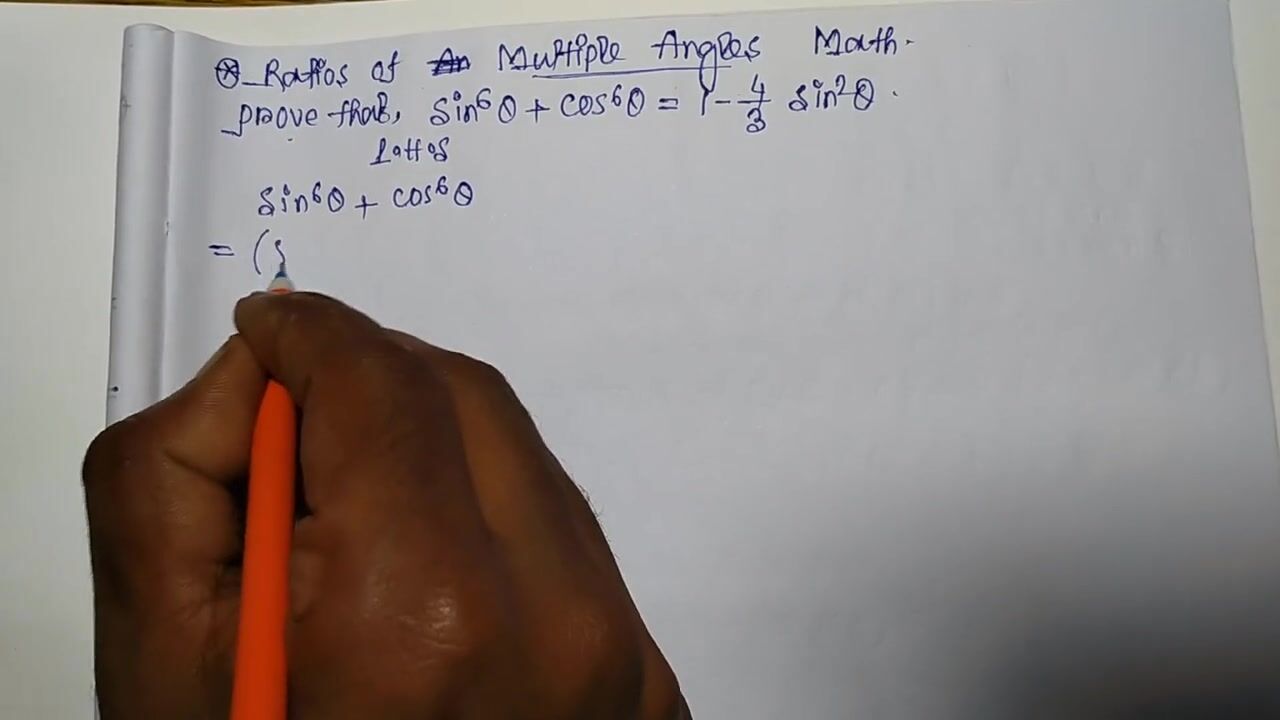 Ratios of Multiple Angles Math.
prove that, sin⁶θ + cos⁶θ = 1 - 4/3 sin²θ.
sin⁶θ + cos⁶θ
= (s